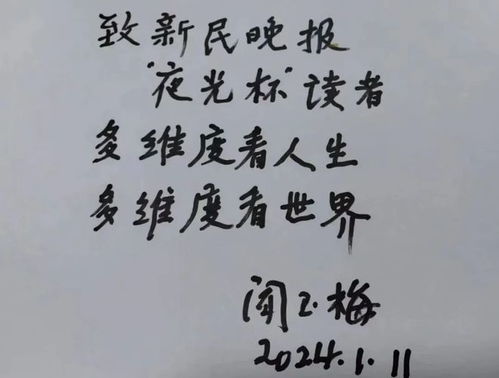 致新民晚报
"夜光杯"读者
多维度看人生
多维度看世界
闻玉梅
2024.1.11